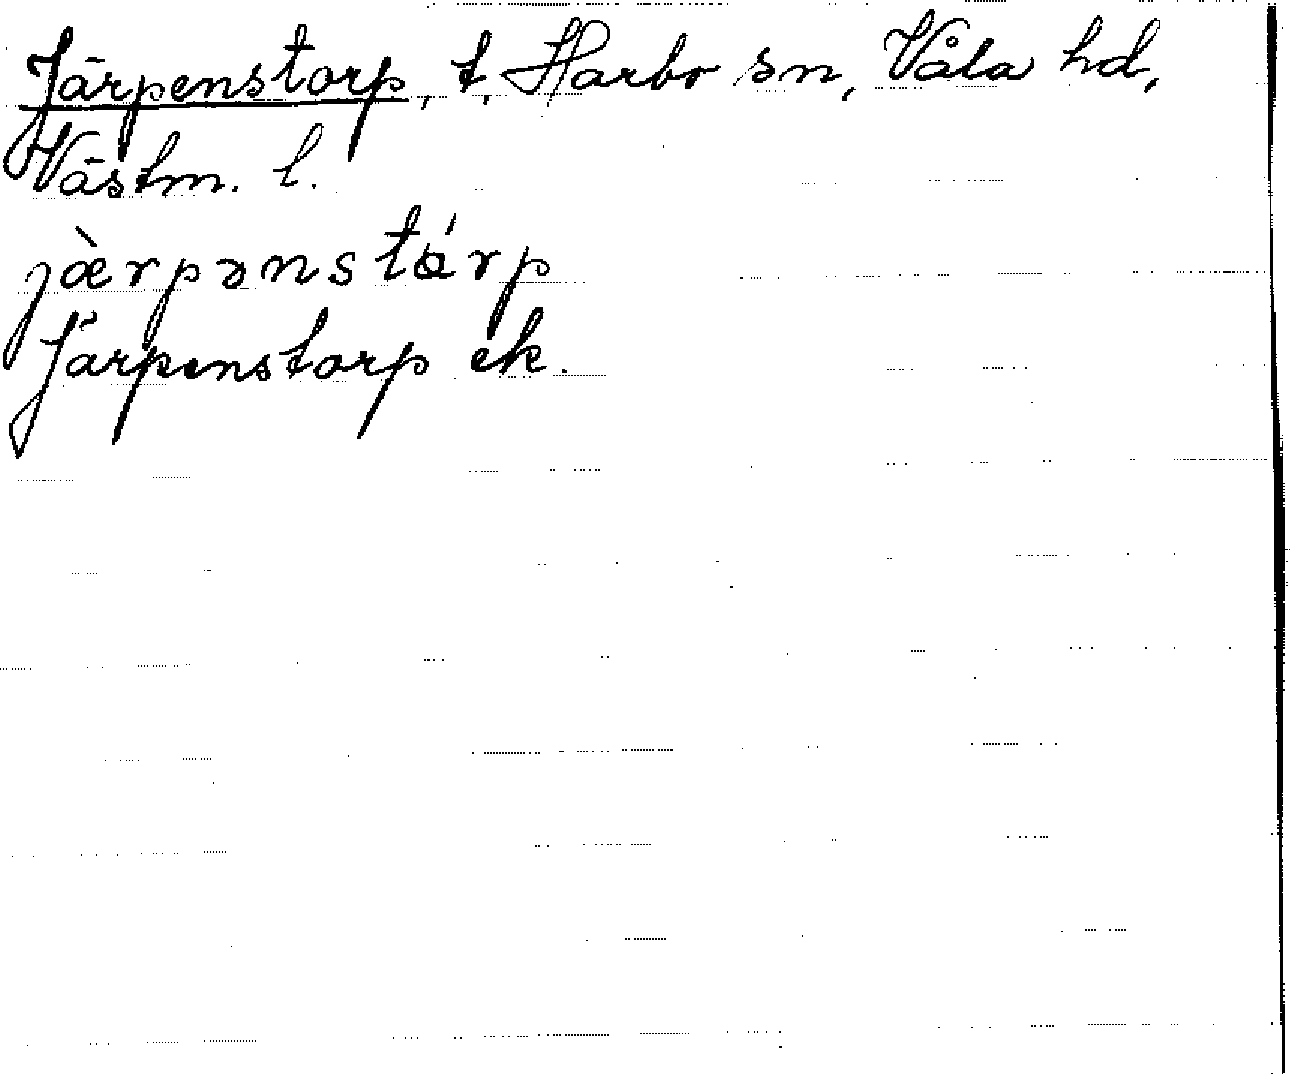 Järpenstorp, t, Harbo sn, Våla hd,
Västm. l.
jæ̀rpənstárp
Järpenstorp ek.